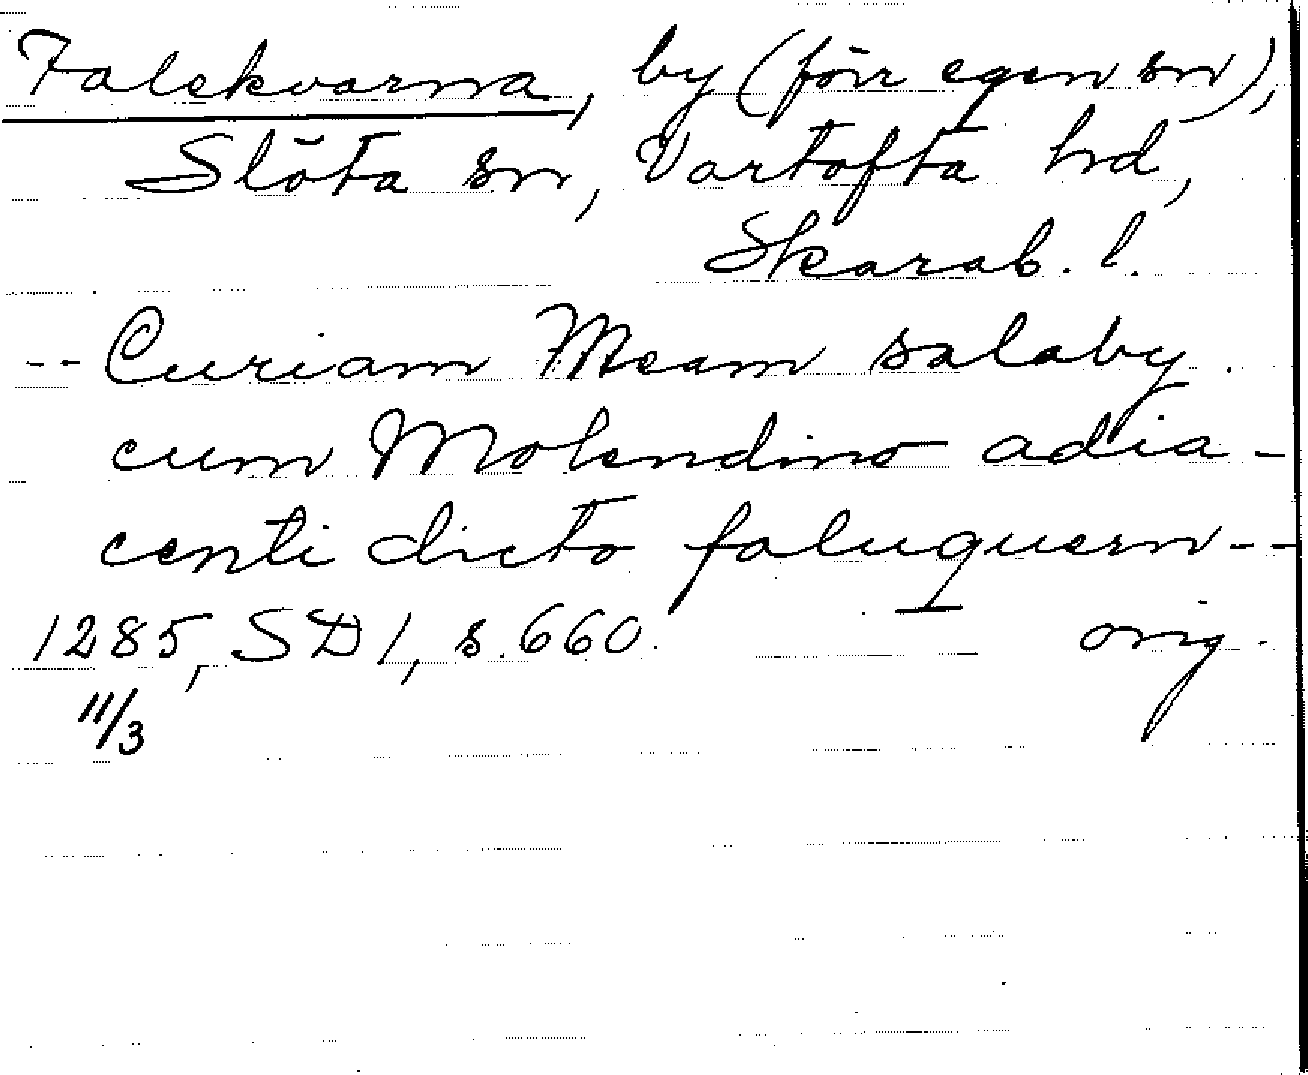 Falekvarna, by (förr egen sn),
Slöta sn, Vartofta hd,
Skarab. l.
-- Curiam Meam salaby
cum Molendino adia-
centi dicto faluquern--
1285, SD 1, s. 660. orig.
11/3